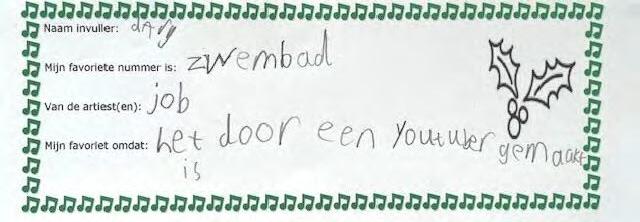 Naam invuller: dAvy
Mijn favoriete nummer is: zwembad
Van de artiest(en): job
Mijn favoriet omdat: het door een Youtuber gemaakt
is